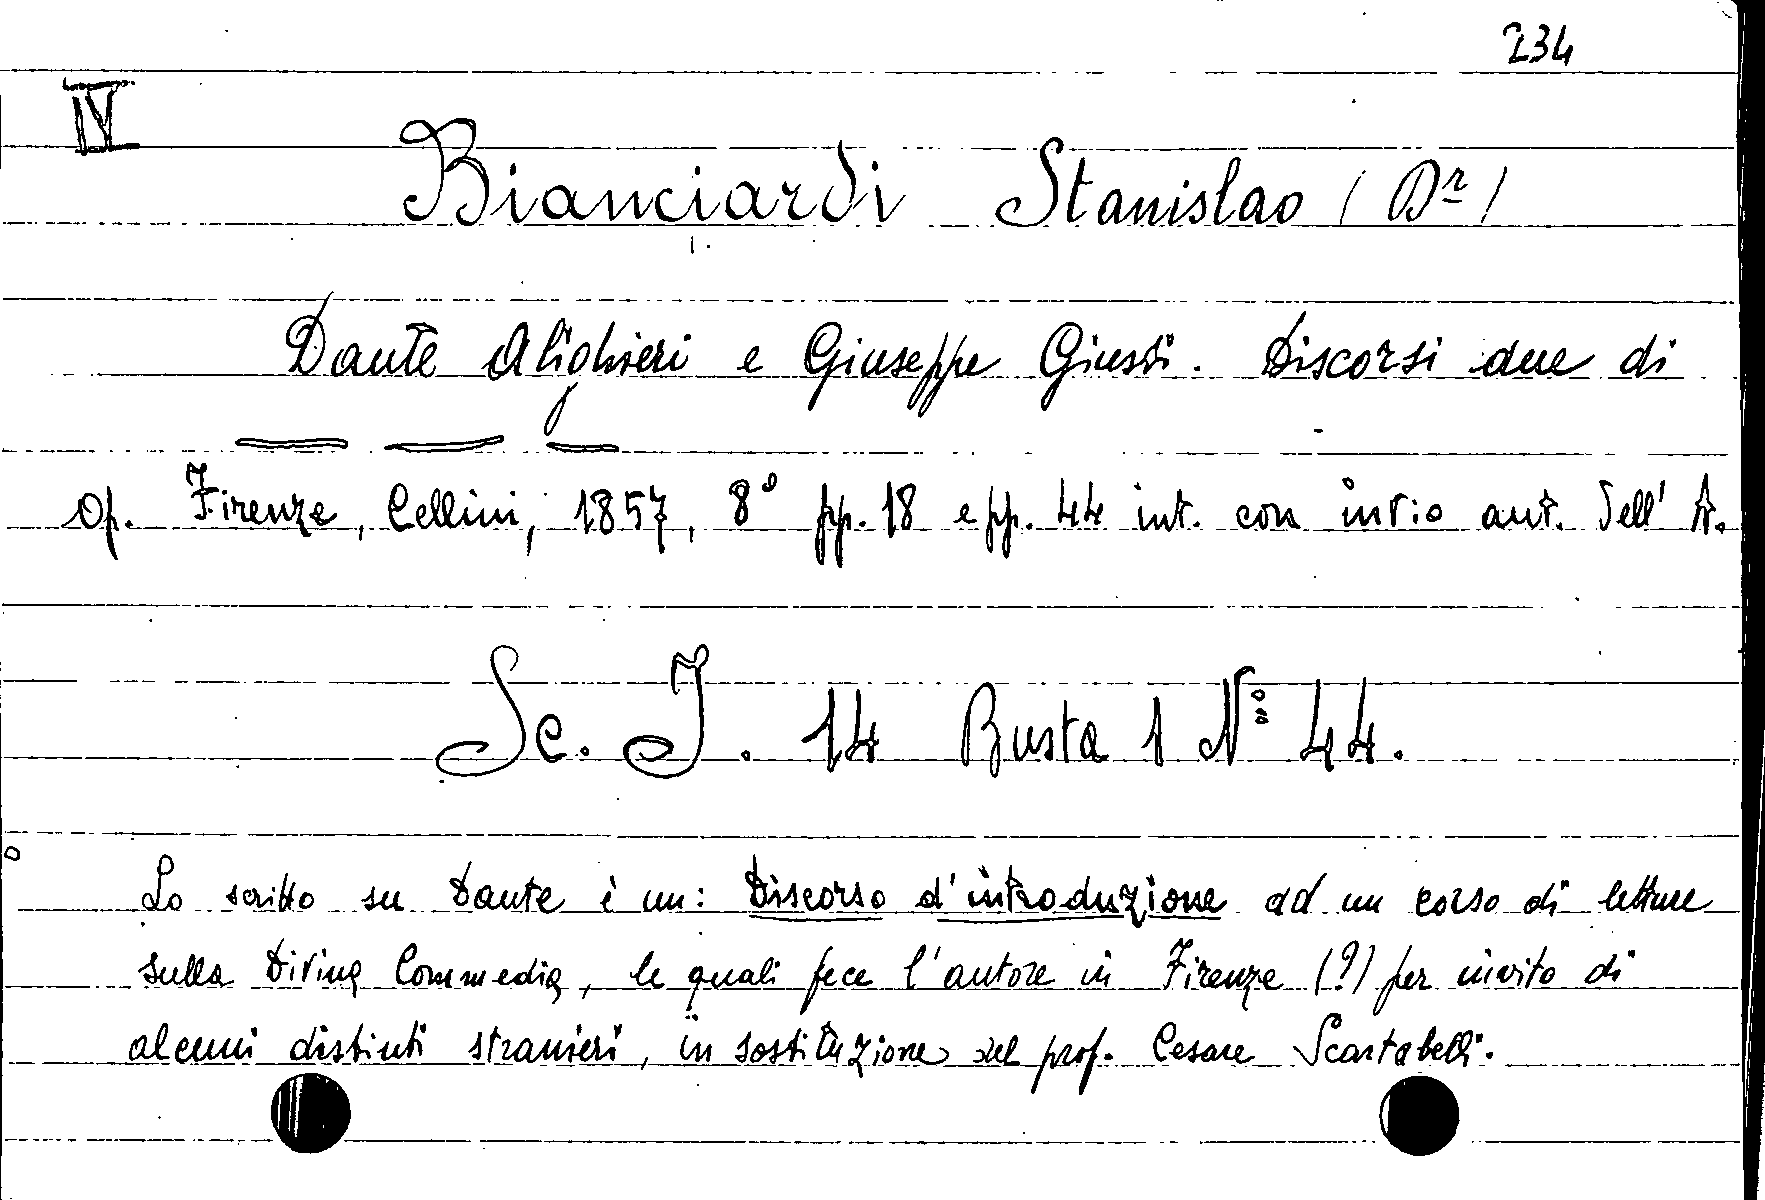 234
IV
Bianciardi Stanislao (Dr)
Dante Alighieri e Giuseppe Giusti. Discorsi due di
— — —
Op. Firenze, Cellini, 1857, 8° pp. 18 e pp. 44 int. con invio aut. dell' A.
Sc. I. 14 Busta 1 N° 44.
Lo scritto su Dante è un: Discorso d'introduzione ad un corso di letture
sulla Divina Commedia, le quali fece l'autore in Firenze (?) per invito di
alcuni distinti stranieri, in sostituzione del prof. Cesare Scartabelli.